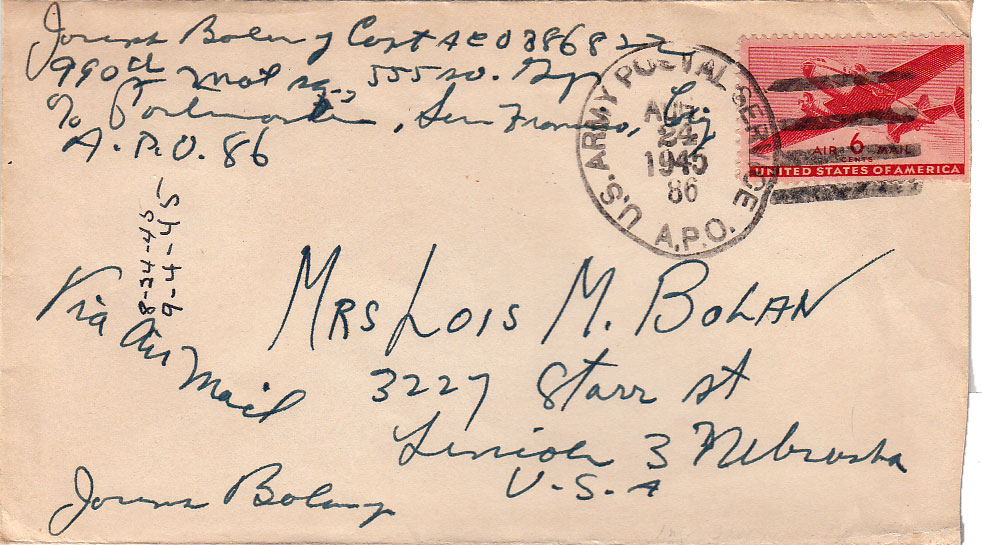 Bolan Capt
990th Sq. 555 so. Gp
c/o Postmaster, San Francisco,
A.P.O. 86
U.S. ARMY POSTAL SERVICE
AUG
24
1945
86
A.P.O.
AIR 6 MAIL
CENTS
UNITED STATES OF AMERICA
8-24-45
9-4-45
Via Air Mail
MRS LOIS M. BOLAN
3227 Starr St
Lincoln 3 Nebraska
U-S-A